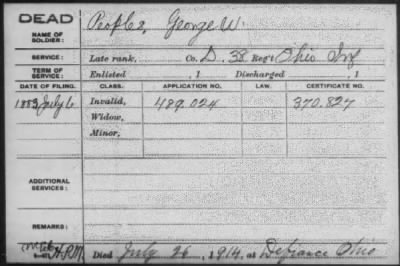 DEAD
NAME OF SOLDIER: Peoples, George W.
SERVICE: Late rank, Co. D. 38 Reg't Ohio Inf
TERM OF SERVICE: Enlisted , 1 Discharged , 1
DATE OF FILING. CLASS. APPLICATION NO. LAW. CERTIFICATE NO.
1883 July 6 Invalid, 489.024 370.827
Widow,
Minor,
ADDITIONAL SERVICES:
REMARKS:
Died July 26, 1914, at Defiance Ohio